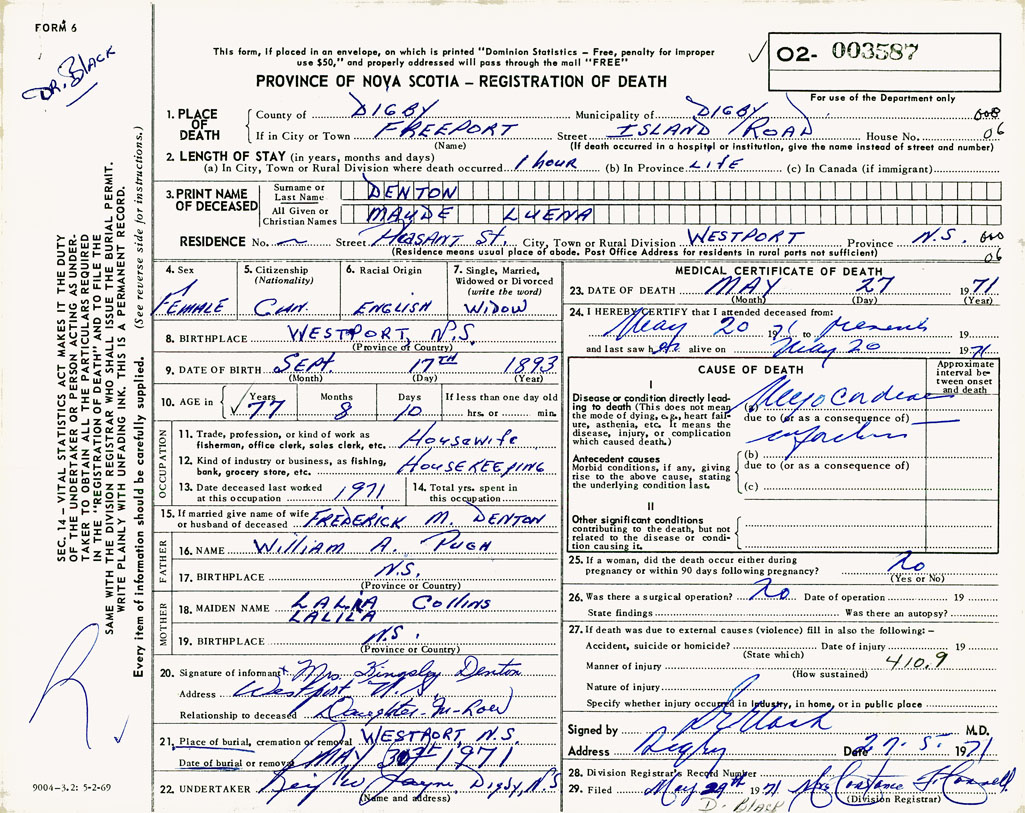 FORM 6
DR. BLACK
This form, if placed in an envelope, on which is printed "Dominion Statistics – Free, penalty for improper
use $50," and properly addressed will pass through the mail "FREE"
O2- 003587
PROVINCE OF NOVA SCOTIA – REGISTRATION OF DEATH
For use of the Department only
1. PLACE OF DEATH
County of DIGBY Municipality of DIGBY
If in City or Town FREEPORT Street ISLAND ROAD House No. 06
(Name) (If death occurred in a hospital or institution, give the name instead of street and number)
2. LENGTH OF STAY (in years, months and days)
(a) In City, Town or Rural Division where death occurred 1 hour (b) In Province LIFE (c) In Canada (if immigrant)
3. PRINT NAME OF DECEASED
Surname or Last Name DENTON
All Given or Christian Names MAUDE LUENA
RESIDENCE No. Street Pleasant St. City, Town or Rural Division WESTPORT Province N.S.
(Residence means usual place of abode. Post Office Address for residents in rural parts not sufficient) 06
4. Sex FEMALE
5. Citizenship (Nationality) CAN.
6. Racial Origin ENGLISH
7. Single, Married, Widowed or Divorced (write the word) WIDOW
8. BIRTHPLACE WESTPORT, N.S.
(Province or Country)
9. DATE OF BIRTH SEPT. 17TH 1893
(Month) (Day) (Year)
10. AGE in Years 77 Months 8 Days 10 If less than one day old hrs. or min.
OCCUPATION
11. Trade, profession, or kind of work as fisherman, office clerk, sales clerk, etc. Housewife
12. Kind of industry or business, as fishing, bank, grocery store, etc. HOUSEKEEPING
13. Date deceased last worked at this occupation 1971
14. Total yrs. spent in this occupation
15. If married give name of wife or husband of deceased FREDERICK M. DENTON
FATHER
16. NAME William A. PUGH
17. BIRTHPLACE N.S.
(Province or Country)
MOTHER
18. MAIDEN NAME LALIA Collins
LALILA
19. BIRTHPLACE N.S.
(Province or Country)
20. Signature of informant Mrs. Kingsley Denton
Address Westport N.S.
Relationship to deceased Daughter-in-Law
21. Place of burial, cremation or removal WESTPORT N.S.
Date of burial or removal MAY 30th 1971
22. UNDERTAKER Jayne Digby, N.S.
(Name and address)
MEDICAL CERTIFICATE OF DEATH
23. DATE OF DEATH MAY 27 1971
(Month) (Day) (Year)
24. I HEREBY CERTIFY that I attended deceased from:
May 20 1971 to present 19
and last saw her alive on May 20 1971
CAUSE OF DEATH
Approximate interval between onset and death
I
Disease or condition directly leading to death (This does not mean the mode of dying, e.g., heart failure, asthenia, etc. It means the disease, injury, or complication which caused death.)
(a) Myocardial
due to (or as a consequence of)
infarction
Antecedent causes
Morbid conditions, if any, giving rise to the above cause, stating the underlying condition last.
(b)
due to (or as a consequence of)
(c)
II
Other significant conditions
contributing to the death, but not related to the disease or condition causing it.
25. If a woman, did the death occur either during pregnancy or within 90 days following pregnancy? No
(Yes or No)
26. Was there a surgical operation? No Date of operation 19
State findings Was there an autopsy?
27. If death was due to external causes (violence) fill in also the following: –
Accident, suicide or homicide? Date of injury 19
(State which)
Manner of injury 410.9
(How sustained)
Nature of injury
Specify whether injury occurred in Industry, in home, or in public place
Signed by D Black M.D.
Address Digby Date 27. 5. 1971
28. Division Registrar's Record Number
29. Filed May 29th 1971 Mrs Constance
(Division Registrar)
D. BLACK
SEC. 14 – VITAL STATISTICS ACT MAKES IT THE DUTY
OF THE UNDERTAKER OR PERSON ACTING AS UNDER-
TAKER TO OBTAIN ALL THE PARTICULARS REQUIRED
IN THE "REGISTRATION OF DEATH" AND TO FILE THE
SAME WITH THE DIVISION REGISTRAR WHO SHALL ISSUE THE BURIAL PERMIT.
WRITE PLAINLY WITH UNFADING INK. THIS IS A PERMANENT RECORD.
Every item of information should be carefully supplied. (See reverse side for instructions.)
9004-3.2: 5-2-69